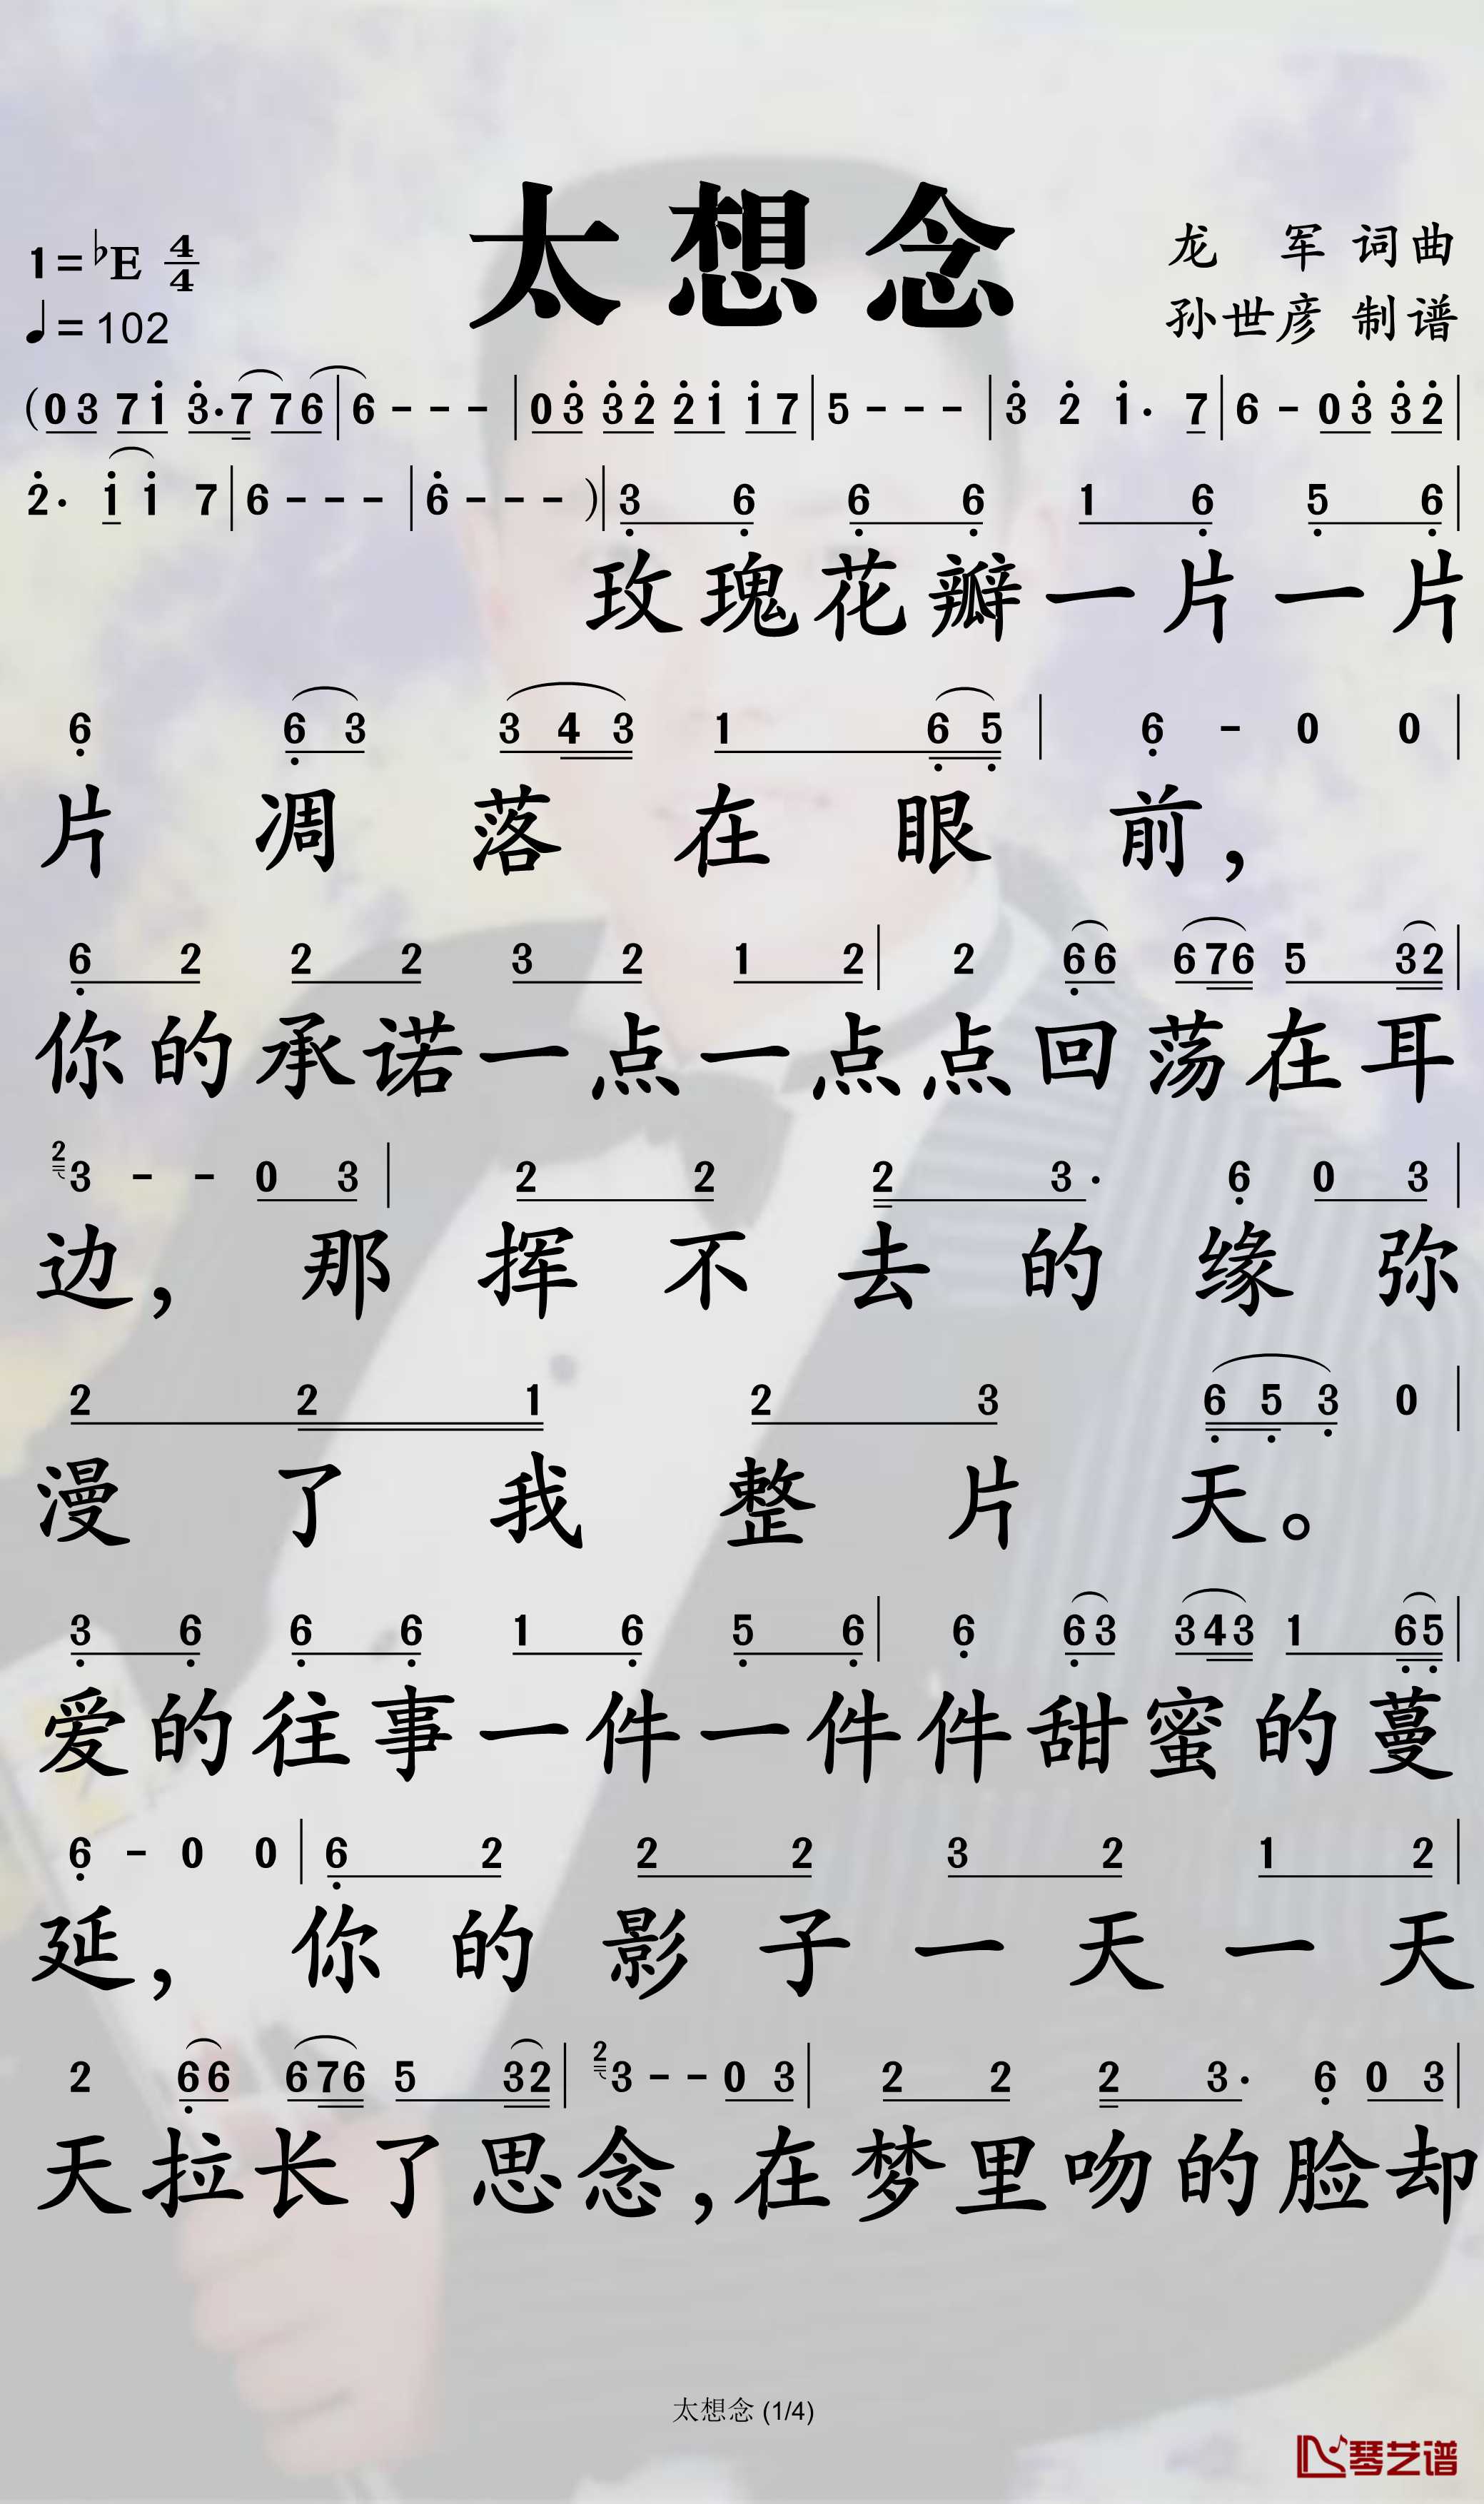 太想念
1=♭E 4/4
龙 军 词曲
♩=102
孙世彦 制谱
(03 71 3·7 76|6 - - -|03 32 21 17|5 - - -|3 2 1· 7|6 - 03 32|
2· 1 1 7|6 - - -|6 - - -)|3 6 6 6 1 6 5 6|
玫瑰花瓣一片一片
6 6 3 3 4 3 1 6 5| 6 - 0 0|
片凋落在眼前，
6 2 2 2 3 2 1 2| 2 66 676 5 32|
你的承诺一点一点点回荡在耳
2 3 - - 0 3| 2 2 2 3· 6 0 3|
边，那挥不去的缘弥
2 2 1 2 3 6 5 3 0|
漫了我整片天。
3 6 6 6 1 6 5 6| 6 63 343 1 65|
爱的往事一件一件件甜蜜的蔓
6 - 0 0|6 2 2 2 3 2 1 2|
延，你的影子一天一天
2 66 676 5 32| 2 3 - - 0 3| 2 2 2 3· 6 0 3|
天拉长了思念，在梦里吻的脸却
太想念 (1/4)
琴艺谱